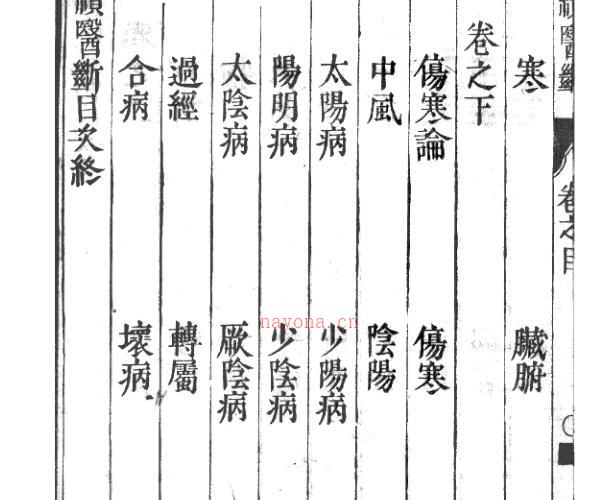 醫斷
卷之目
寒　臟腑
卷之下
傷寒論　傷寒
中風　陰陽
太陽病　少陽病
陽明病　少陰病
太陰病　厥陰病
過經　轉屬
合病　壞病
醫斷目次終
nayona.cn